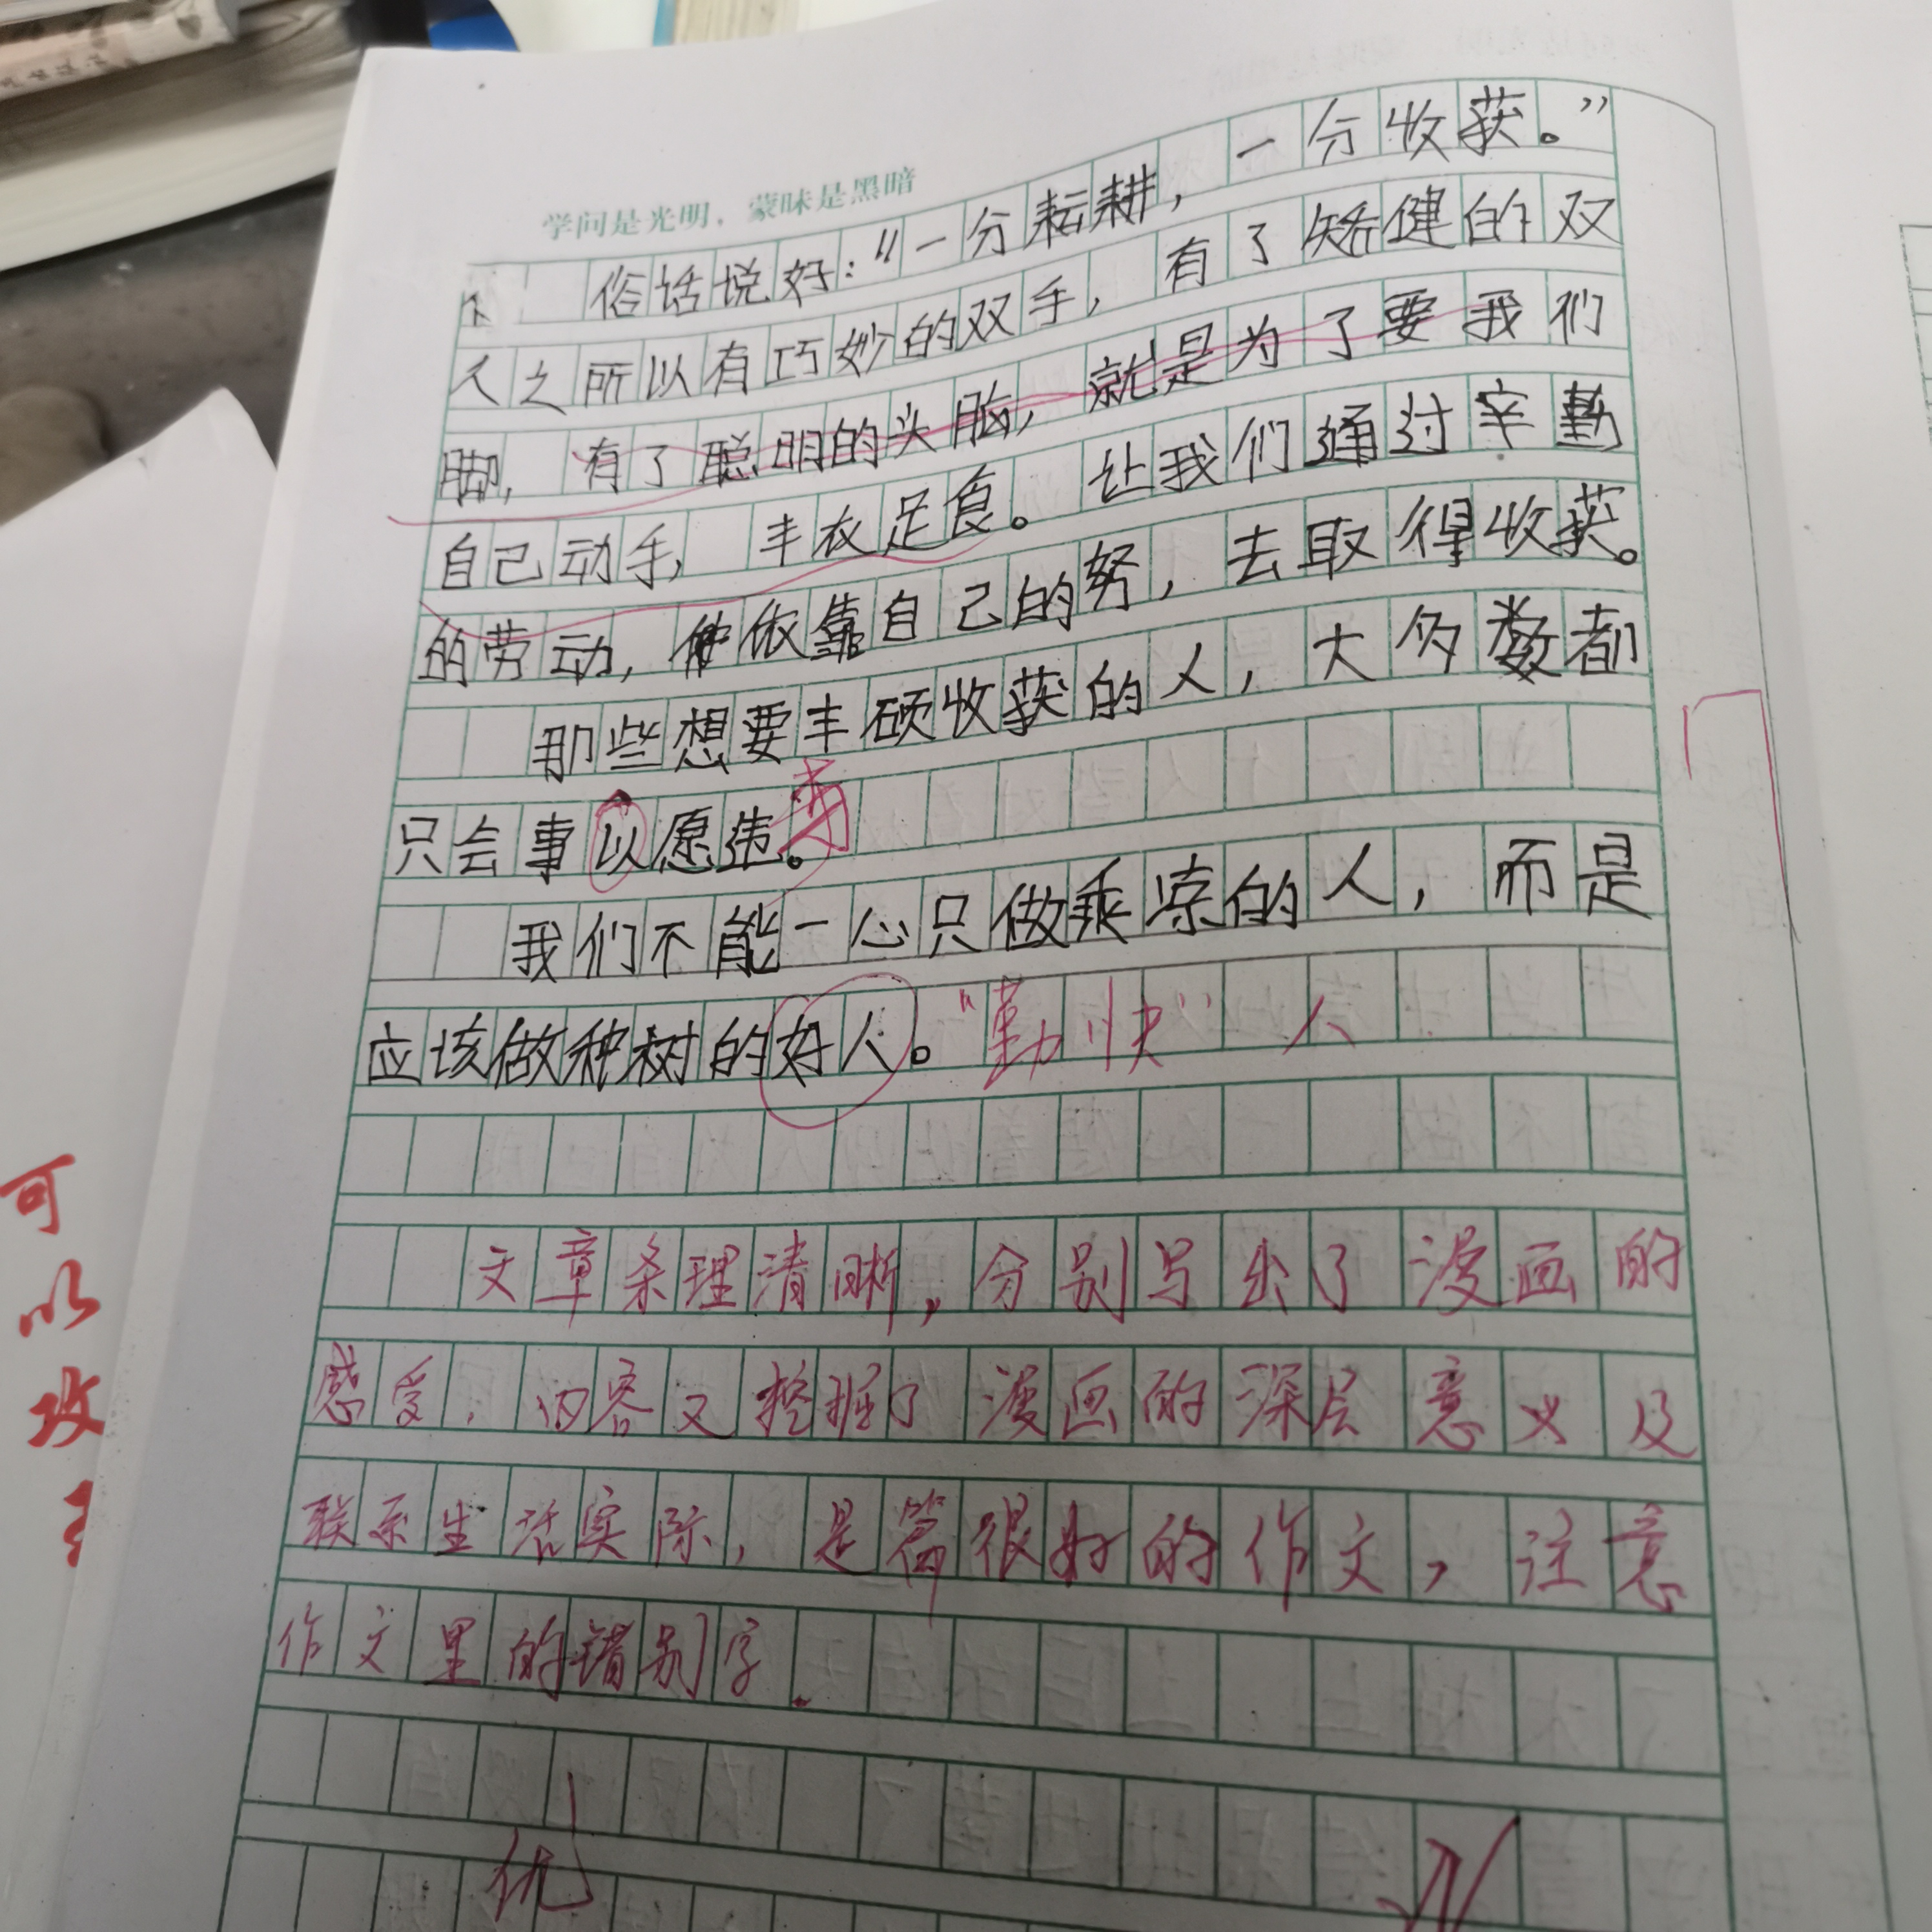 学问是光明，蒙昧是黑暗
俗话说好：“一分耘耕，一分收获。”
人之所以有巧妙的双手，有了矫健的双
脚，有了聪明的头脑，就是为了要我们
自己动手，丰衣足食。让我们通过辛勤
的劳动，使依靠自己的努，去取得收获。
那些想要丰硕收获的人，大多数都
只会事以愿违。
我们不能一心只做乘凉的人，而是
应该做种树的好人。“勤快”人
文章条理清晰，分别写出了漫画的
感受，内容又挖掘了漫画的深层意义及
联系生活实际，是篇很好的作文，注意
作文里的错别字.
优
可
以
攻